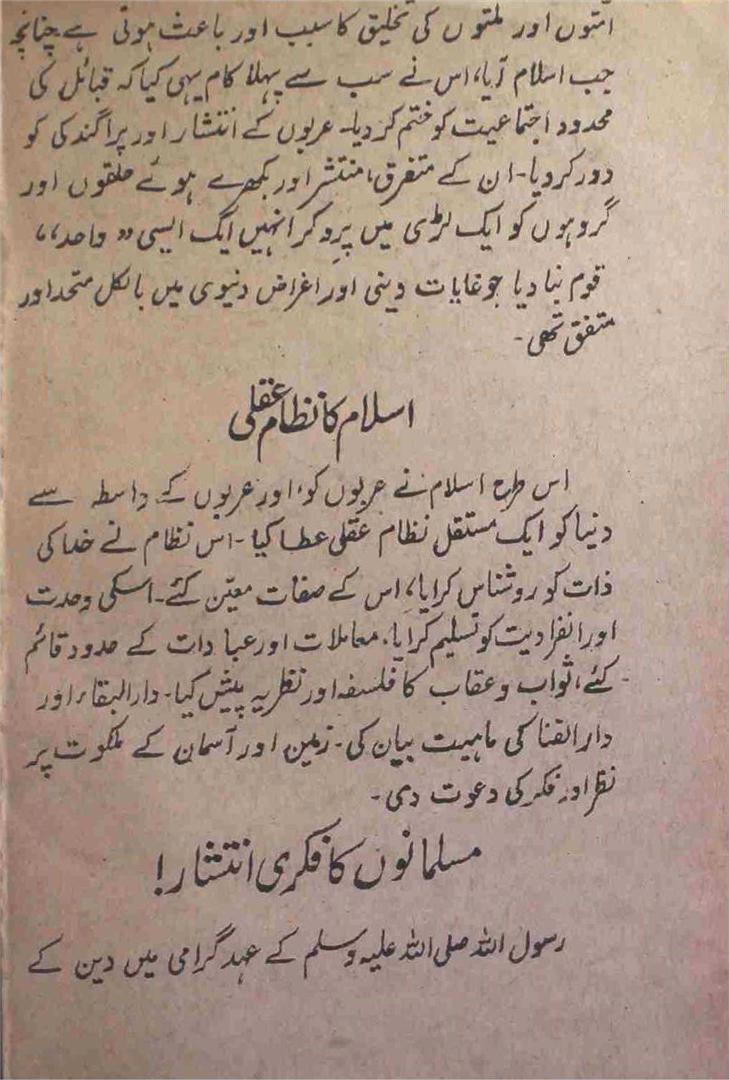 امتوں اور ملتوں کی تخلیق کا سبب اور باعث ہوتی ہے چنانچہ
جب اسلام آیا، اس نے سب سے پہلا کام یہی کیا کہ قبائل کی
محدود اجتماعیت کو ختم کر دیا۔ عربوں کے انتشار اور پراگندگی کو
دور کر دیا۔ ان کے متفرق، منتشر اور بکھرے ہوئے حلقوں اور
گروہوں کو ایک لڑی میں پرو کر انہیں ایک ایسی ”واحد“
قوم بنا دیا جو غایات دینی اور اغراض دنیوی میں بالکل متحد اور
متفق تھی۔
اسلام کا نظام عقلی
اس طرح اسلام نے عربوں کو، اور عربوں کے واسطہ سے
دنیا کو ایک مستقل نظام عقلی عطا کیا۔ اس نظام نے خدا کی
ذات کو روشناس کرایا، اس کے صفات معیّن کئے۔ اسکی وحدت
اور انفرادیت کو تسلیم کرایا، معاملات اور عبادات کے حدود قائم
کئے، ثواب و عقاب کا فلسفہ اور نظریہ پیش کیا۔ دار البقاء اور
دار الفنا کی ماہیت بیان کی۔ زمین اور آسمان کے ملکوت پر
نظر اور فکر کی دعوت دی۔
مسلمانوں کا فکری انتشار!
رسول اللہ صلی اللہ علیہ وسلم کے عہد گرامی میں دین کے